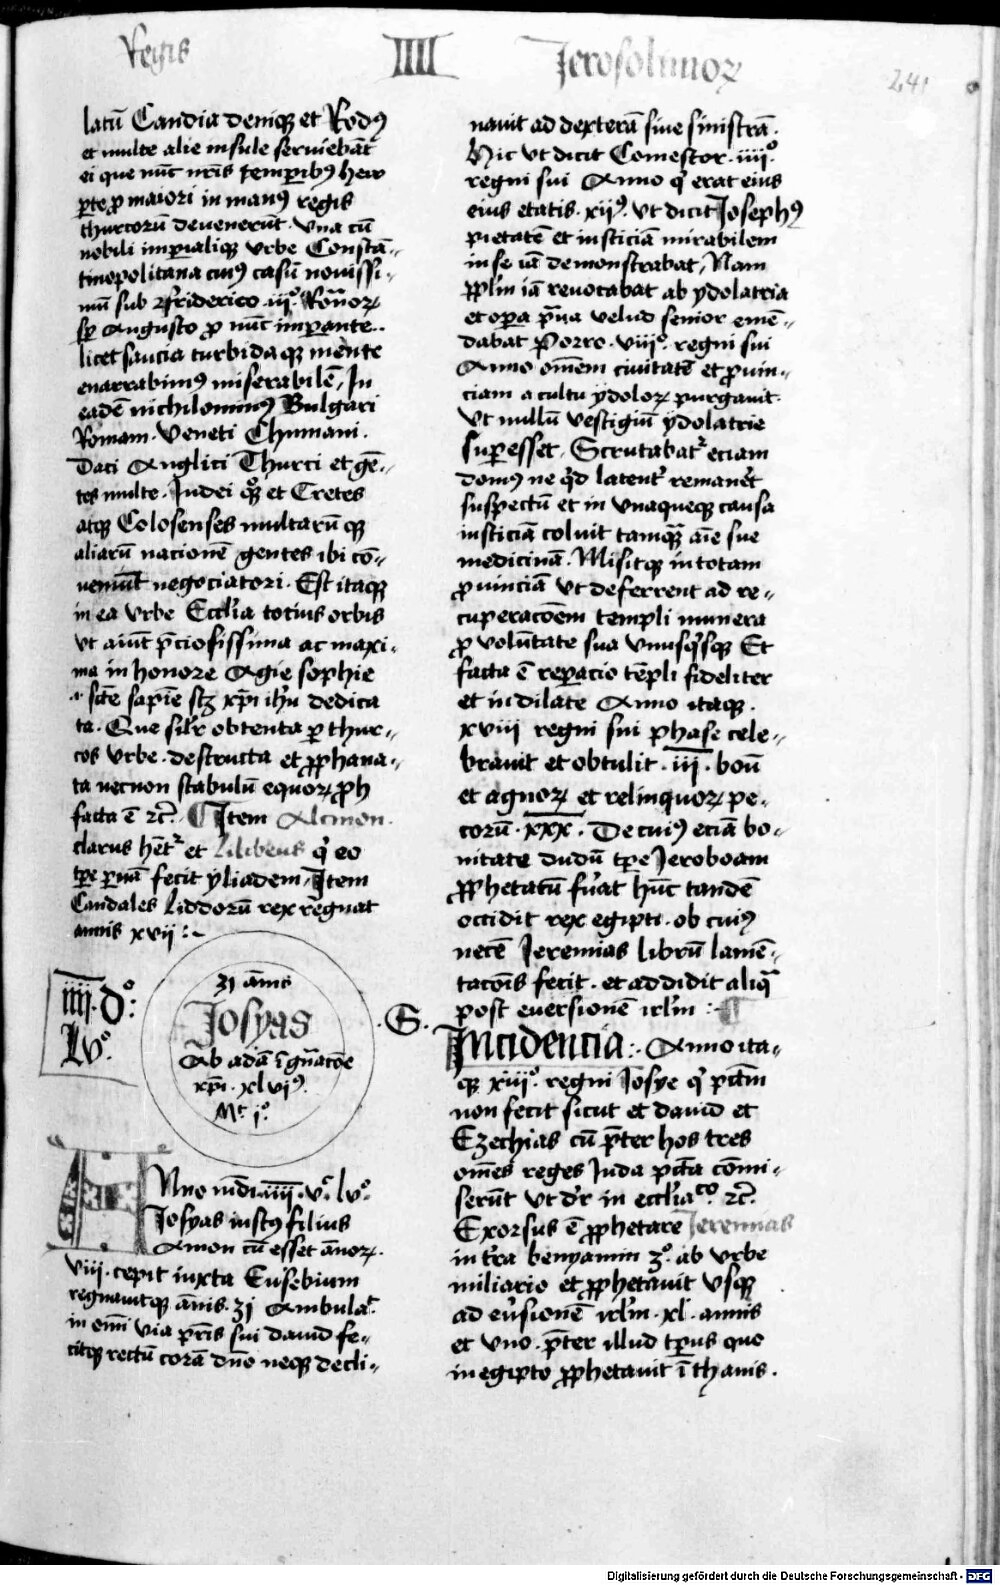 Regis IIII Jerosolimoꝝ 241
latū Candia deniqꝫ et Rodꝰ
et multe alie insule serviebāt
ei que nūc nr̄is temꝑibꝰ heu
ꝑte ꝓ maiori in manꝰ regis
thurcorū devenerūt. Una cū
nobili imꝑialiqꝫ urbe Constā-
tinopolitana cuiꝰ casū novissi-
mū sub Friderico .iiiº. Romāoꝝ
sꝑ Augusto ꝓ nūc imꝑante..
licet saucia turbida qꝫ mente
enarrabimꝰ miserabilē, In
eadē nichilominꝰ Bulgari
Romam. Veneti Chumani.
Daci Anglici Thurci et gē-
tes multe. Judei qꝫ et Cretes
atqꝫ Colosenses multarū qꝫ
aliarū nacionē gentes ibi cō-
veniūt negociatori. Est itaqꝫ
in ea urbe Eccl̄ia totius orbis
ut aiūt p̄ciosissima ac maxi-
ma in honore Agie sophie
.i. sc̄te sapīe sꝫ xp̄i ih̄u dedica
ta. Que sil̄r obtenta ꝑ thur-
cos urbe. destructa et ꝓphana-
ta necnon stabulū equoꝝ ꝓh
facta ē ⁊c̄. ¶ Item Alcmon.
clarus hēt᷑ et Lilibeus q̄ eo
tꝑe ꝑvā fecit yliadem, Item
Candales Liddorū rex regnat
annis xvii :~
IIII. Dº:
Lvº.
31 ānis
Josyas
Ab adā ī gn̄atōe
xp̄i. xlviꝰ.
Mᵗ. iº.
.S.
Anno mūdi .iiii. vᶜ. lvº.
Josyas iustꝰ filius
Amon cū esset ānoꝝ.
viii. cepit iuxta Eusebium
regnavitqꝫ ānis. 31 Ambulat᷑
in om̄i via pr̄is sui david fe-
citqꝫ rectū corā dn̄o neqꝫ decli-
navit ad dexterā sive sinistrā.
Hic ut dicit Comestor. iiiiº.
regni sui Anno q̄ erat eius
eius etatis. xiiꝰ. ut dicit Josephꝰ
pietatē et iusticiā mirabilem
in se iā demonstrabat, Nam
ꝓpl̄m iā revocabat ab ydolatria
et oꝑa p̄va velud senior emē-
dabat Porro. viiiº. regni sui
Anno om̄em civitatē et ꝓvin-
ciam a cultu ydoloꝝ purgavit.
Ut nullū vestigiū ydolatrie
suꝑesset, Scrutabat᷑ eciam
domꝰ ne q̄d latent᷑ remanēt
suspectū et in unaqueqꝫ causa
iusticiā coluit tamqꝫ aīe sue
medicinā. Misitqꝫ in totam
ꝓvinciā ut deferrent ad re-
cuperacōem templi munera
ꝓ volūtate sua unusq̄sqꝫ Et
facta ē reꝑacio tēpli fideliter
et indilate Anno itaqꝫ.
xviii regni sui phase cele-
bravit et obtulit. iii. boū
et agnoꝝ et relinquoꝝ pe-
corū. xxx. De cuiꝰ eciā bo-
nitate dudū tꝑe Jeroboam
ꝓphetatū fūat hūc tandē
occidit rex egipti. ob cuiꝰ
necē Jeremias librū lamē-
tacōis fecit. et addidit aliq̄
post eversionē irl̄m :
Incidencia:. Anno ita-
qꝫ xiiiº. regni Josye q̄ pc̄tm
non fecit sicut et david et
Ezechias cū p̄ter hos tres
om̄es reges Juda pc̄ta cōmi-
serūt ut dr̄ in eccl̄iaᶜº. ⁊c̄.
Exorsus ē ꝓphetare Jeremias
in tr̄a benyamin 3º. ab urbe
miliario et ꝓphetavit usqꝫ
ad ev̄sionē irl̄m. xl. annis
et uno. p̄ter illud tꝑus quo
in egipto ꝓphetavit ī thanis.
Digitalisierung gefördert durch die Deutsche Forschungsgemeinschaft - DFG